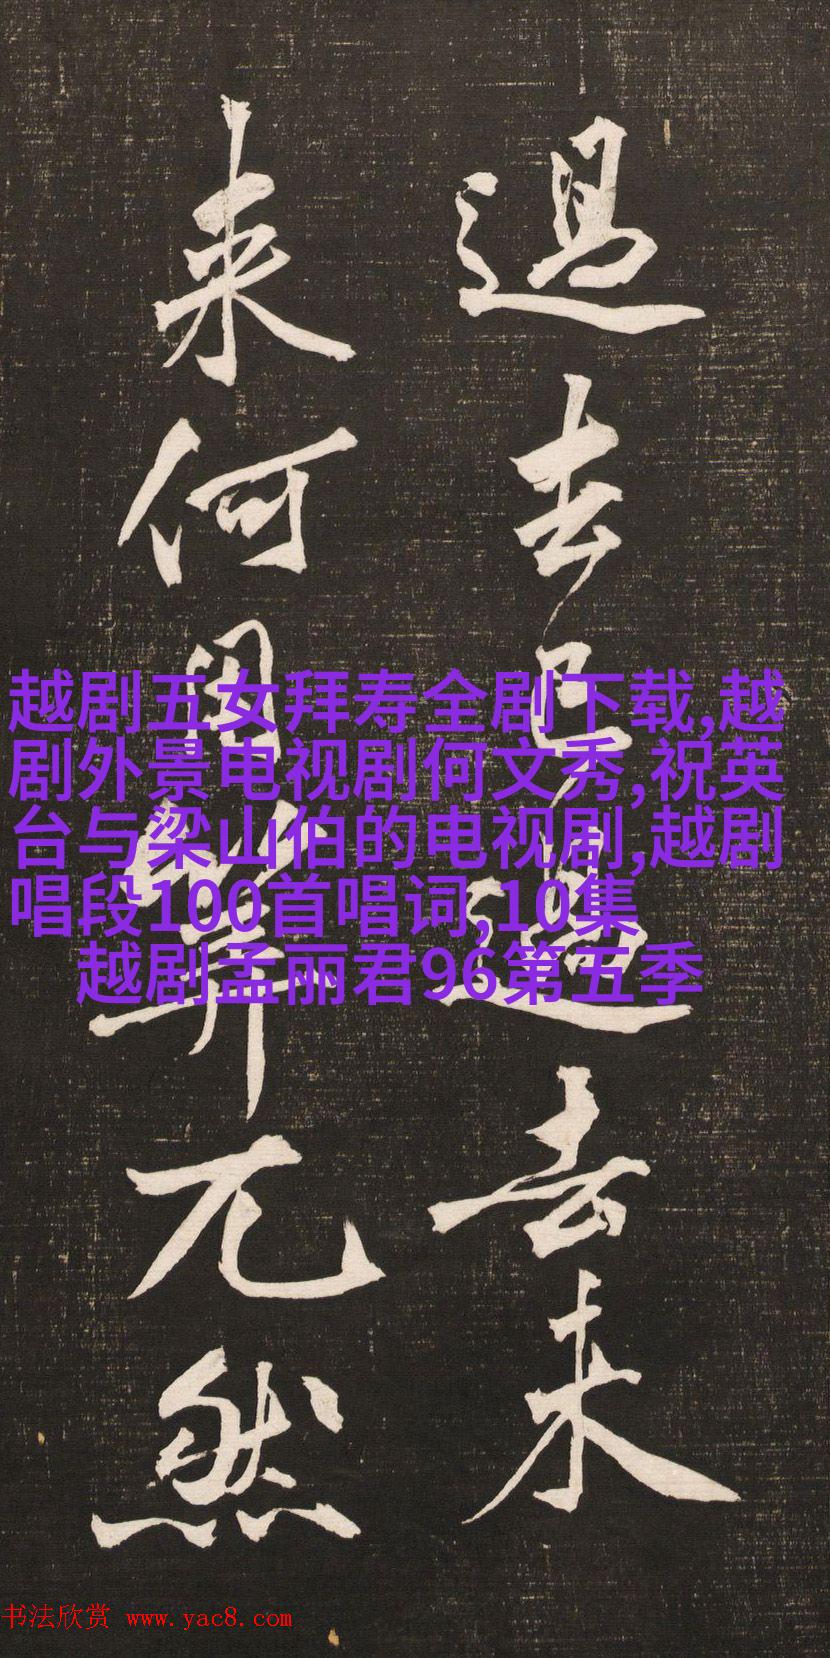 過去已過去未
来何用算兀然
越剧五女拜寿全剧下载,越
剧外景电视剧何文秀,祝英
台与梁山伯的电视剧,越剧
唱段100首唱词,10集
越剧孟丽君96第五季
书法欣赏 www.yac8.com